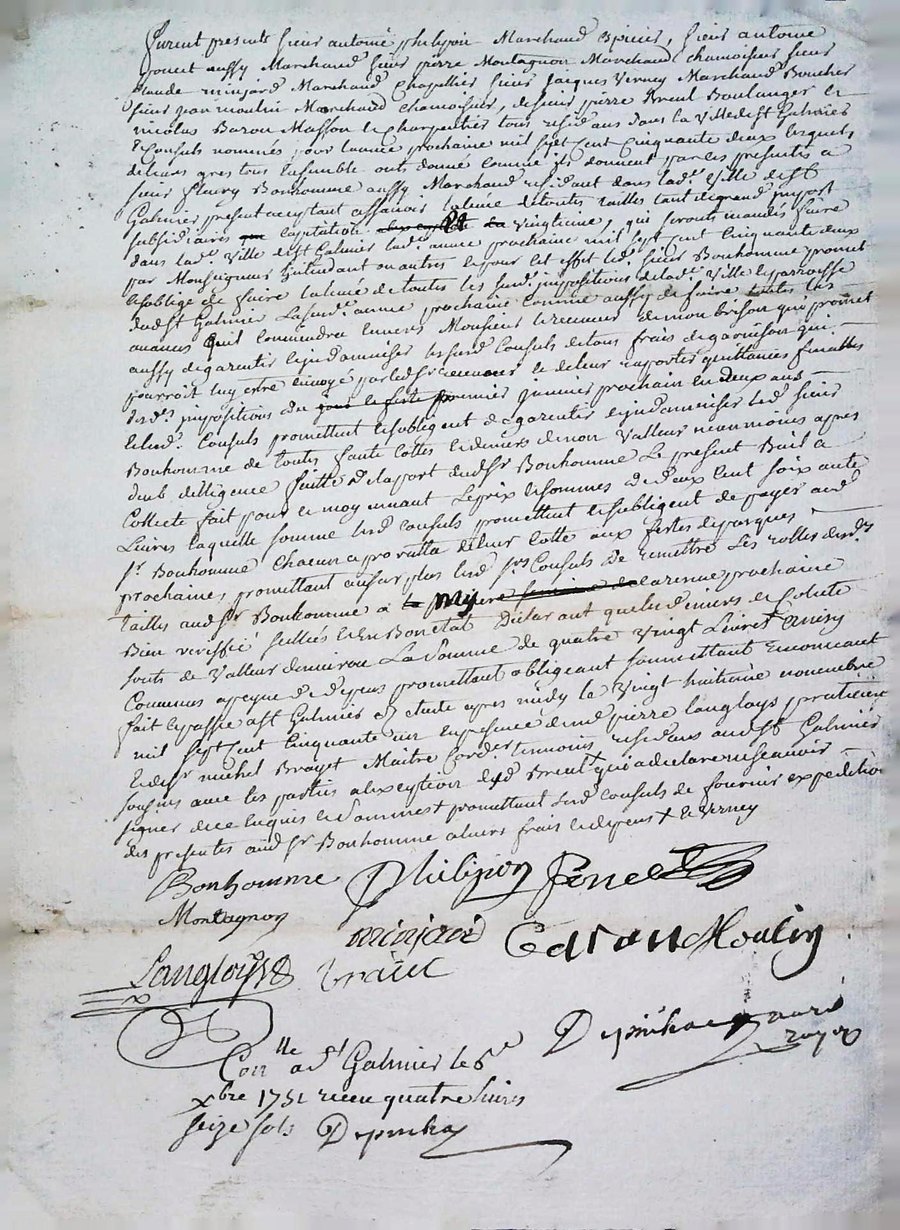 furent presents sieur antoine philipon Marchand Epicier, sieur antoine
poncet aussy Marchand sieur pierre Montagnon Marchand Chamoiseur sieur
Claude minjard Marchand Chapellier sieur Jacques Verney Marchand Boucher
sieur jean moulin Marchand Chamoiseur, & sieur pierre Breul Boulanger &
nicolas Baron Masson & Charpentier tous residans dans la Ville de st Galmier
& Consuls nommés pour lannée prochaine mil sept cent cinquante deux lesquels
de leurs grés tous Ensemble ont donné comme ils donnent par les presentes a
sieur fleury Bonhomme aussy Marchand residant dans lade Ville de st
Galmier present acceptant assavoir la levée de toutes tailles tant du grand import
subsidiaires capitation Et Vingtieme, qui seronts mandés faire
dans lade Ville de st Galmier lade année prochaine mil sept cent cinquante deux
par Monseigneur lintendant ou autres & pour cet effet led sieur Bonhomme promet
& soblige de faire la levée de toutes les sudes impositions de lade Ville & parroisse
dudt st Galmier lasude année prochaine comme aussy de faire toutes les
avances quil conviendra envers Monsieur le receveur de monbrison qui promet
aussy de garentir & indamniser lesusd Consuls de tous frais de garnison qui
pourroit luy etre envoyé par led sr receveur & de leur raporter quittances finalles
desdes impositions du premier janvier prochain en deux ans
& lesd Consuls promettent & sobligent de garentir & indamniser led sieur
Bonhomme de toutes fautte cottes & deniers de non Valleur neanmoins apres
deub deligence faitte de la part dud sr Bonhomme Le present Bail a
Collecte fait pour & moyennant Le prix & sommes de deux Cent soixante
Livres laquelle somme lesd consuls promettent & sobligent de payer aud
sr Bonhomme Chacun a proratta de leur Cotte aux festes de pasques
prochaines, promettant en surplus lesd srs Consuls de remettre Les rolles desdes
tailles aud sr Bonhomme a my carenne prochaine
Bien veriffié sellées & En Bon etat Declarant que les deniers de Colecte
sont de Valleur denviron La Somme de quatre Vingt Livres Ainsy
Convenus a peyne de depens promettant obligeant soumettant renonceant
fait & passée a st Galmier Etude apres midy le Vingt huitieme novembre
mil sept cent Cinquante un En presence de me pierre langloys praticien
& de sr michel Brayet Maitre Corder temoins residans aud st Galmier
sousignés avec les parties a lexception dud Breul qui a declaré ne scavoir
signer de ce Enquis & Sommés + promettant lesd Consuls de fournir expedition
des presentes aud sr Bonhomme a leurs frais & depens + & Verney
Bonhomme Philipon Poncet
Montagnon
minjard Baron Moulin
Langloys Braiet
Depinhac
Conlle a st Galmier le 6e
xbre 1751 receu quatre livres
seize sols Depinhac